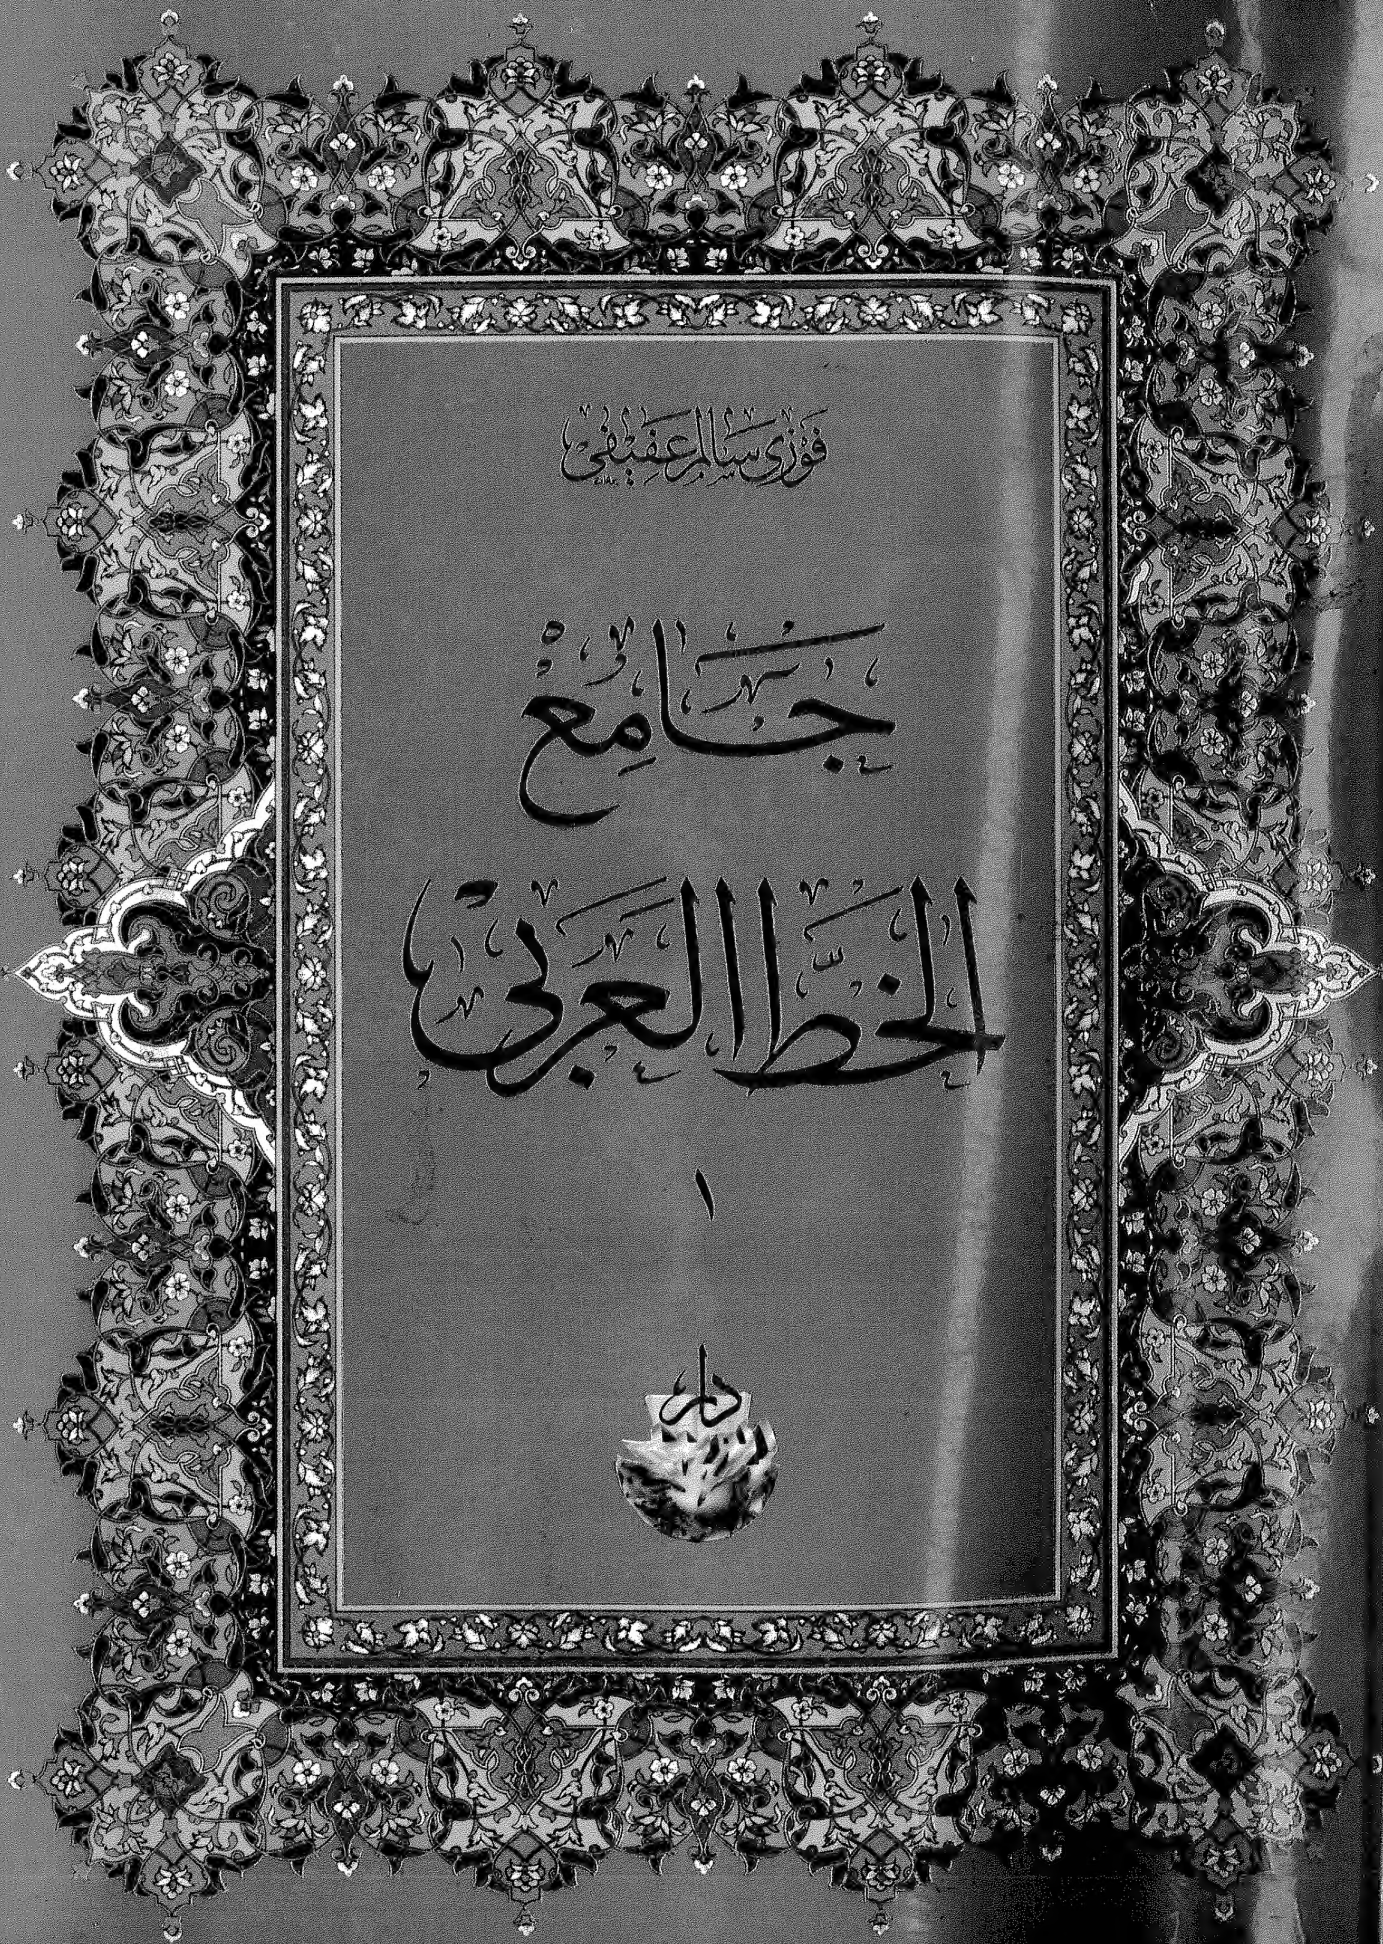 فوزي سالم عفيفي
جَامِع
الخطّ العربي
١
دار